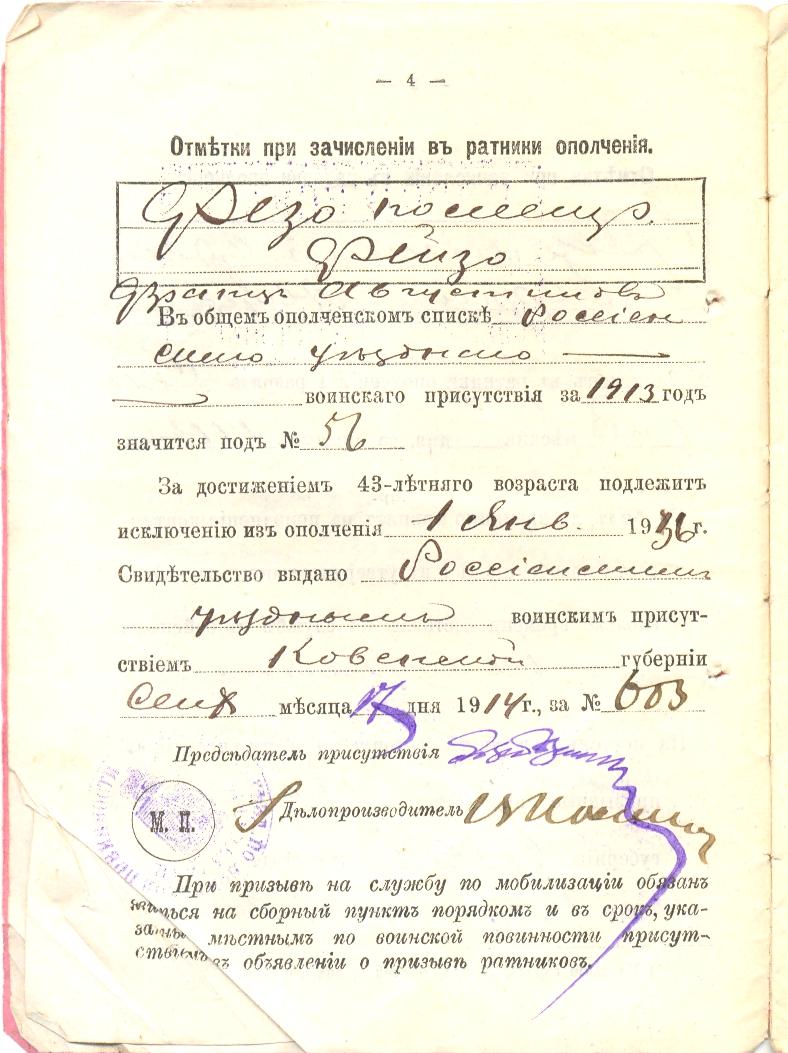 — 4 —
Отмѣтки при зачисленіи въ ратники ополченія.
Фейзо
Францъ Августиновъ
Въ общемъ ополченскомъ спискѣ Россіен
скаго уѣзднаго
воинскаго присутствія за 1913 годъ
значится подъ № 56
За достиженіемъ 43-лѣтняго возраста подлежитъ
исключенію изъ ополченія 1 Янв. 1936 г.
Свидѣтельство выдано Россіенскимъ
уѣзднымъ воинскимъ присут-
ствіемъ Ковенской губерніи
Сент мѣсяца 17 дня 1914 г., за № 603
Предсѣдатель присутствія
М. П. Дѣлопроизводитель
При призывѣ на службу по мобилизаціи обязан
на сборный пунктъ порядкомъ и въ срокъ, ука-
мѣстнымъ по воинской повинности присут-
ствіемъ въ объявленіи о призывѣ ратниковъ.